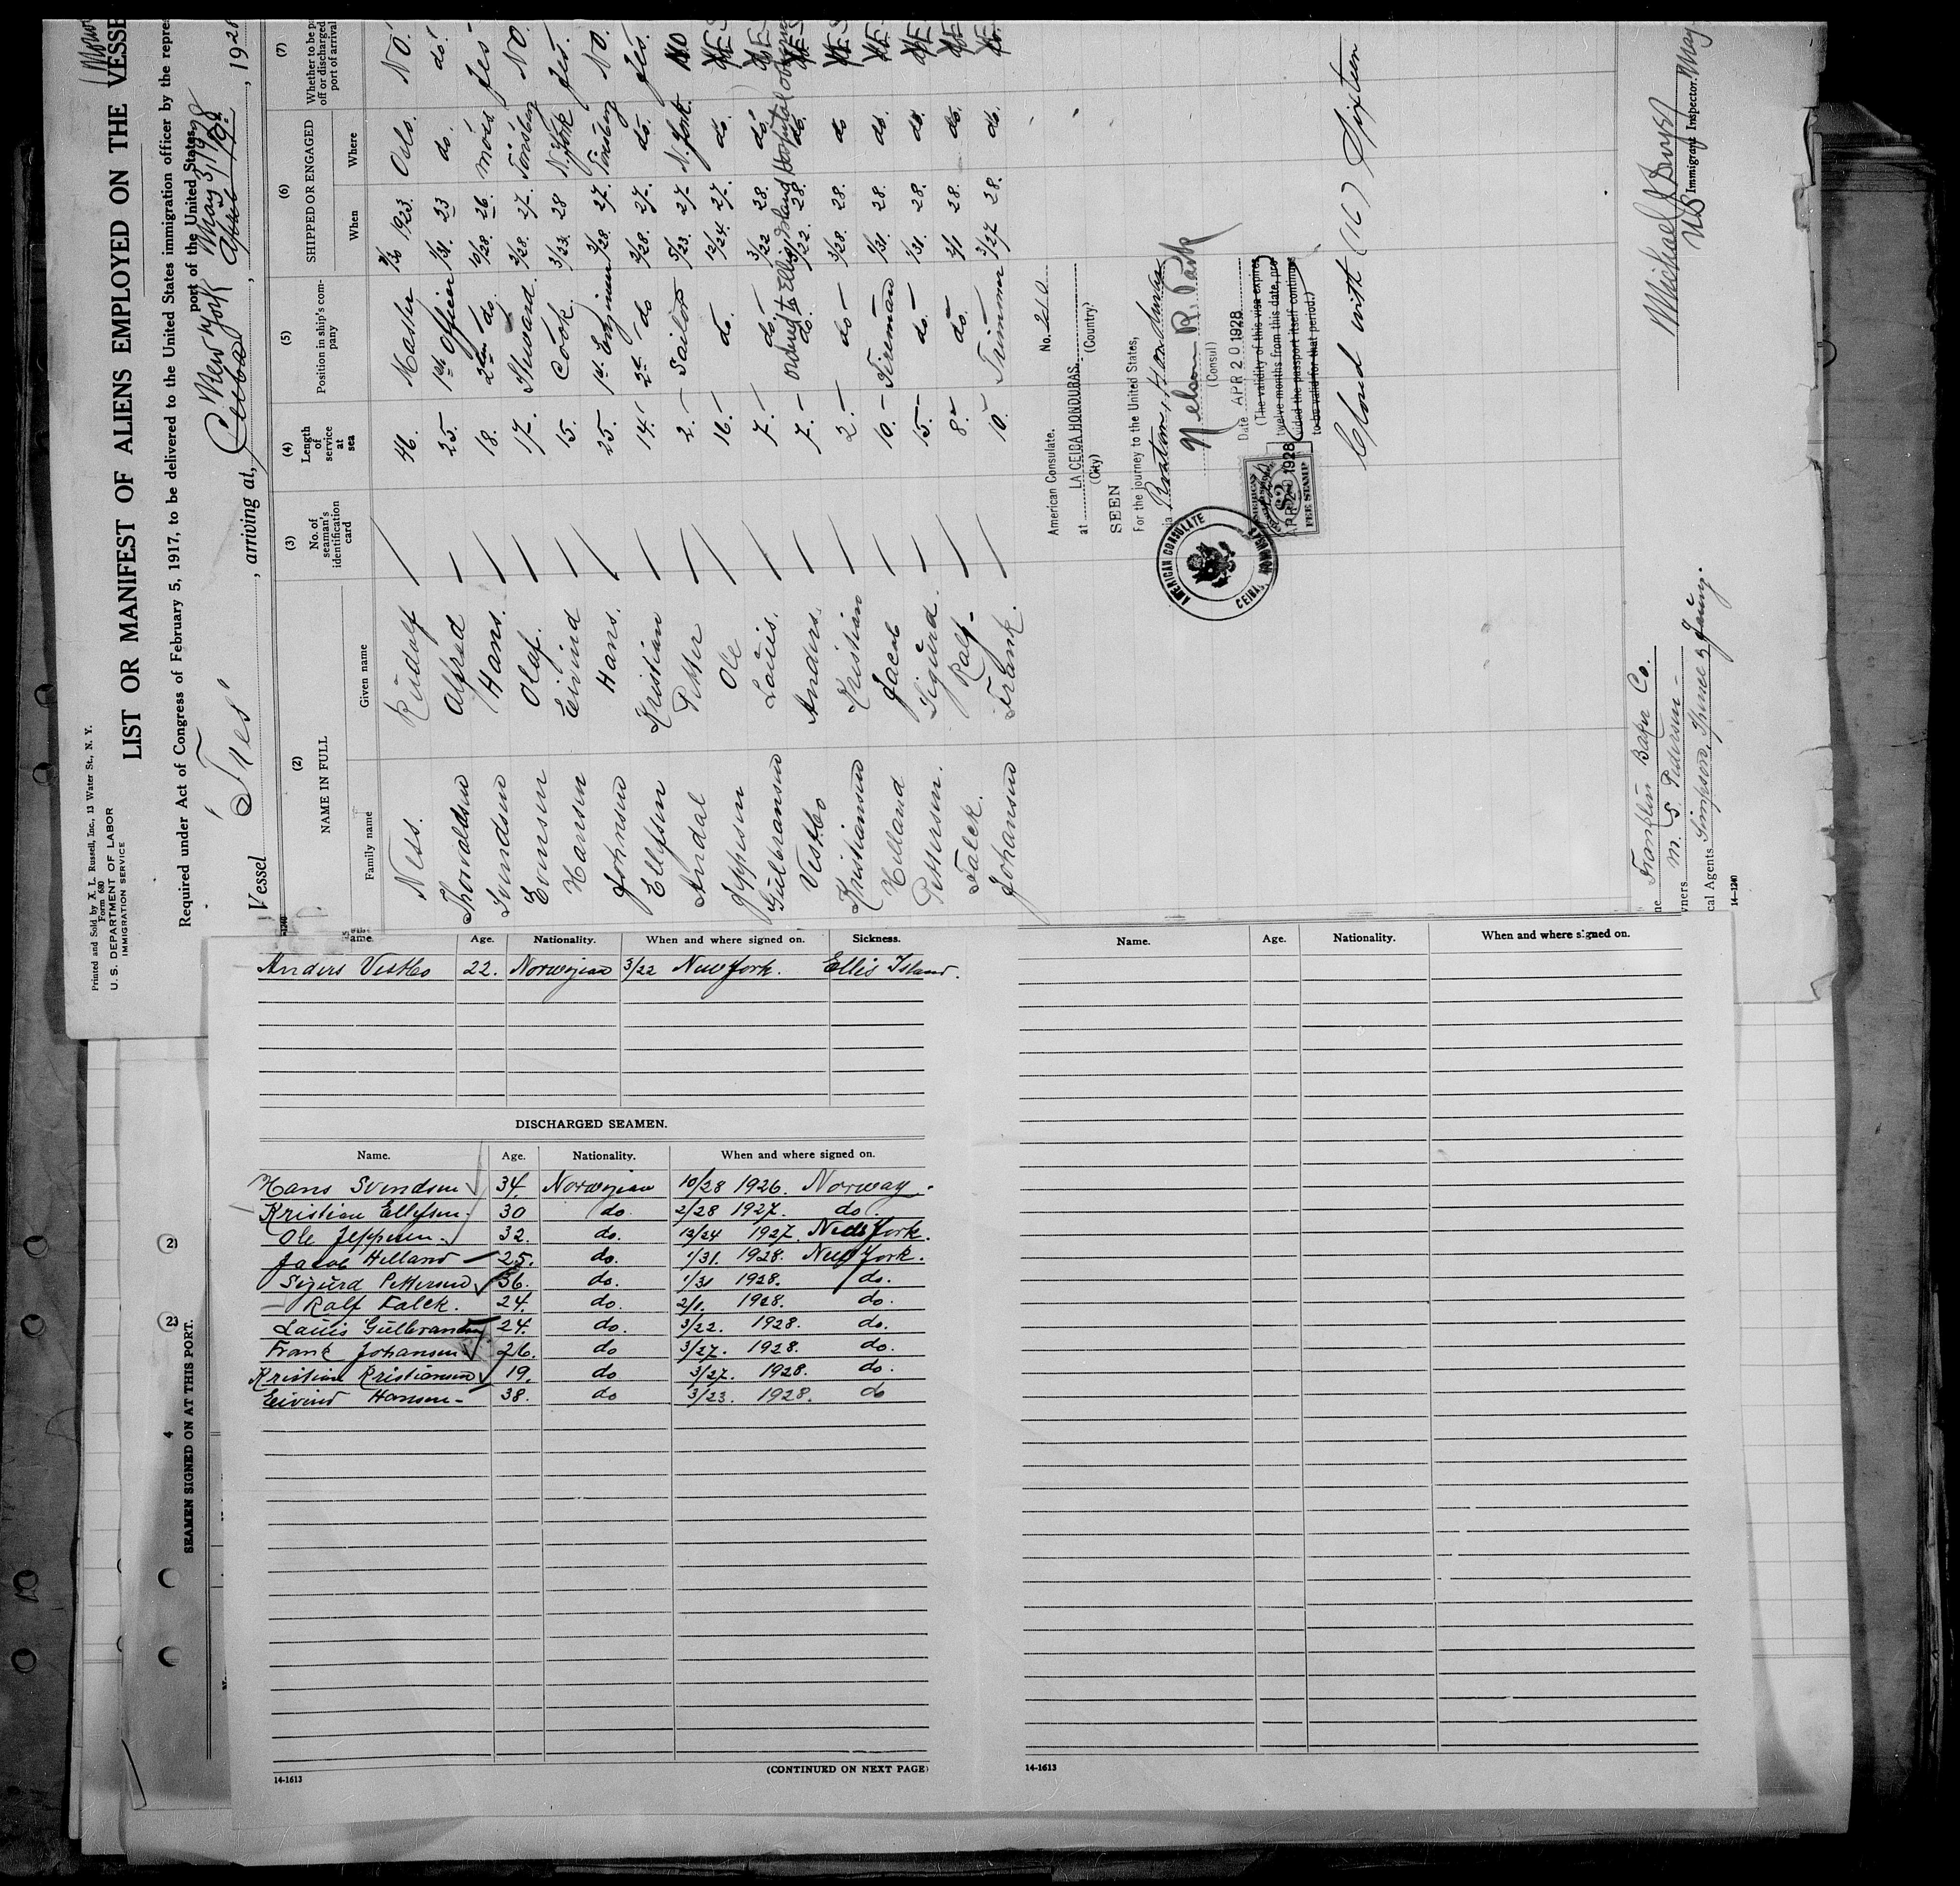 Printed and Sold by A. L. Russell, Inc., 13 Water St., N. Y.
Form 680
U. S. DEPARTMENT OF LABOR
IMMIGRATION SERVICE
LIST OR MANIFEST OF ALIENS EMPLOYED ON THE VESSE
Required under Act of Congress of February 5, 1917, to be delivered to the United States immigration officer by the repres
port of the United States
New York May 3, 1928
Vessel "Ines", arriving at, Ceiba, April 19th, 1928
(2) (3) (4) (5) (6) (7)
NAME IN FULL No. of seaman's identification card Length of service at sea Position in ship's company SHIPPED OR ENGAGED Whether to be p off or discharged port of arrival
Family name Given name When Where
Ness. Rudolf / 46. Master 1923. Oslo. NO.
Thorvaldsen Alfred 25- 1st Officer 1/31. 23 do. do.
Svendsen Hans. / 18. 2en do. 10/28. 26. Yes-
Evensen Olaf. / 17. Steward. 2/28. 27. Tönsberg NO.
Hansen Eivind / 15. Cook. 3/23. 28 N. York Yes.
Johnsen Hans. / 25. 1st Enginer 2/28. 27. Tönsberg NO.
Ellefsen Kristian / 14. 2nd do 2/28. 27. do. Yes.
Andal Petter / 2.- Sailor 5/23. 27 N. York. NO
Jeppesen Ole / 16.- do.- 12/24. 27. do.
Gulbransen Louis. / 7.- do.- 3/22 28. do.
Ordered to Ellis Island Hospital
Vestbo Anders. / 7.- do. 3/22. 28. do.
Kristiansen Kristian / 2.- do- 3/28. 28. do
Helland Jacob / 10.- Fireman 1/31. 28. do.
Pettersen. Sigurd. / 15.- do- 1/31. 28. do.
Falck. Ralf. / 8- do- 2/1 28. do.
Johansen Frank. / 10- Trimmer 3/27 28. do.
American Consulate. No. 210
at LA CEIBA HONDURAS.
(City) (Country)
SEEN
For the journey to the United States,
via Roatan, Honduras
Nelson R. Park
(Consul)
Date APR 20 1928
(The validity of this visa expires
twelve months from this date, pro
vided the passport itself continues
to be valid for that period.)
AMERICAN CONSULATE
CEIBA, HONDURAS
APR 20 1928
FEE STAMP
Closed with (16) Sixteen
Michael J Dwyer
US Immigrant Inspector. May
Franklin Baker Co.
M. S. Pedersen -
wners
cal Agents Simpson, Spence & Young.
14-1240
ame. Age. Nationality. When and where signed on. Sickness.
Anders Vestbo 22. Norwegian 3/22 New York. Ellis Island.
DISCHARGED SEAMEN.
Name. Age. Nationality. When and where signed on.
Hans Svendsen 34. Norwegian 10/28 1926. Norway.
Kristian Ellefsen. 30 do. 2/28 1927. do.
Ole Jeppesen 32. do. 12/24 1927. New York.
Jacob Helland 25. do. 1/31. 1928. New York.
Sigurd Pettersen 36. do. 1/31 1928. do.
Ralf Falck. 24. do. 2/1. 1928. do.
Louis Gulbransen 24. do. 3/22. 1928. do.
Frank Johansen 26. do 3/27. 1928. do.
Kristian Kristiansen 19. do 3/27. 1928. do.
Eivind Hansen- 38. do 3/23. 1928. do
14-1613
(CONTINUED ON NEXT PAGE)
Name. Age. Nationality. When and where signed on.
14-1613
4
SEAMEN SIGNED ON AT THIS PORT.